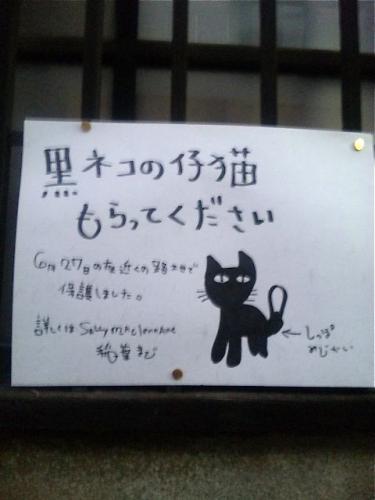 黒ネコの仔猫
もらってください
6月27日の夜近くの路地で
保護しました。
詳しくは Sally maclennane
稲葉まで
←しっぽ
めじるし